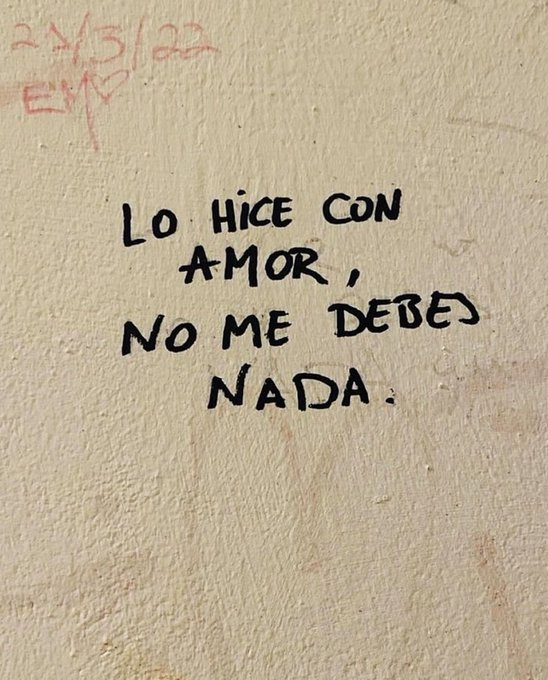 21/3/22
EM
LO HiCE CON
AMOR,
NO ME DEBES
NADA.